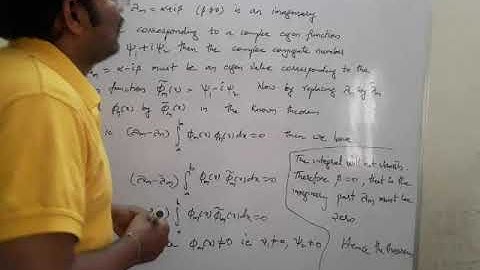 λm = α+iβ (β≠0) is an imaginary
corresponding to a complex eigen function
ψ1 + iψ2 then the complex conjugate number
= α-iβ must be an eigen value corresponding to the
function φ̃m(x) = ψ1 - iψ2 Now by replacing λn by λ̃m
φn(x) by φ̃m(x) in the known theorem
(λm-λn) ∫ab φm(x) φn(x) dx = 0 then we have
(λm-λ̃m) ∫ab φm(x) φ̃m(x) dx = 0
∫ab φm(x) φ̃m(x) dx = 0
φm(x) ≠ 0 ie ψ1 ≠ 0, ψ2 ≠ 0
The integral will not vanish.
Therefore β=0, that is the
imaginary part λm must be
zero.
Hence the theorem